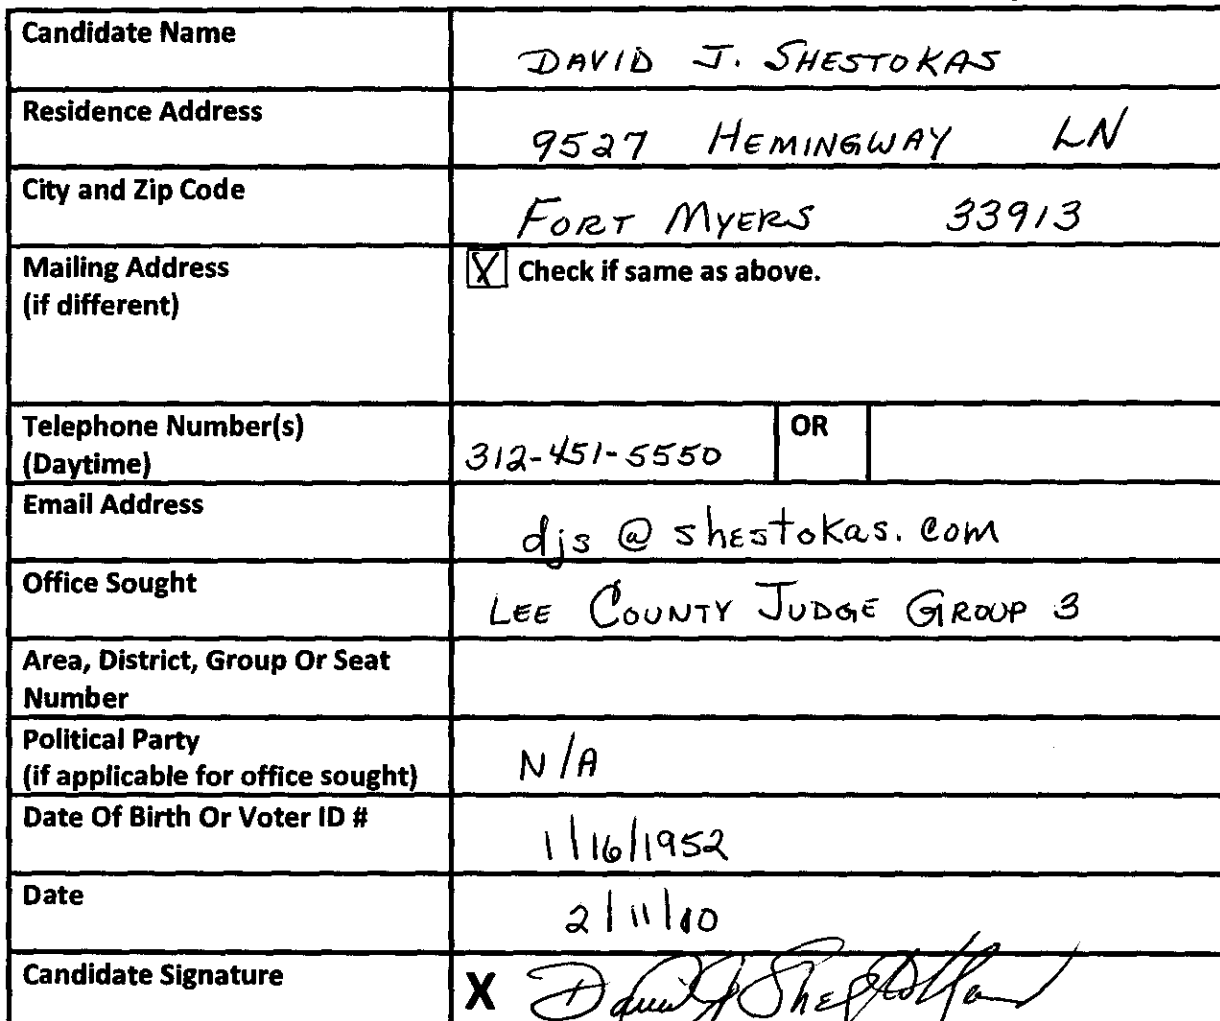 Candidate Name
DAVID J. SHESTOKAS
Residence Address
9527 HEMINGWAY LN
City and Zip Code
FORT MYERS 33913
Mailing Address
(if different)
X Check if same as above.
Telephone Number(s)
(Daytime)
312-451-5550 OR
Email Address
djs @ shestokas.com
Office Sought
LEE COUNTY JUDGE GROUP 3
Area, District, Group Or Seat
Number
Political Party
(if applicable for office sought)
N/A
Date Of Birth Or Voter ID #
1/16/1952
Date
2/11/10
Candidate Signature
X David J Shestokas